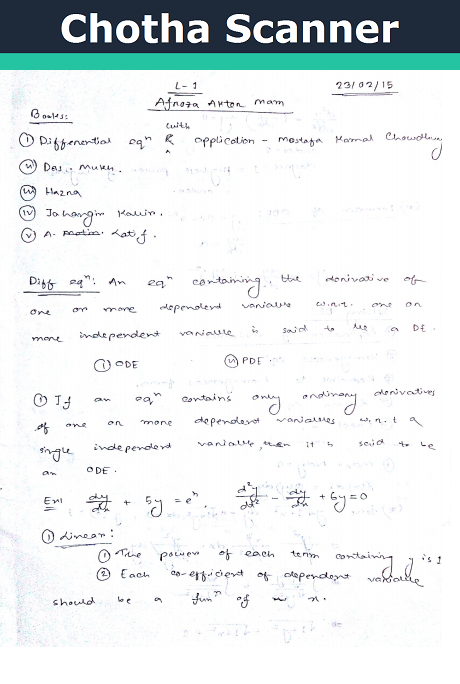 Chotha Scanner
L-1 23/02/15
Afroza Akter mam
Books:
with
(i) Differential eqⁿ & application - Mostafa Kamal Chowdhury
(ii) Das, Mukh.
(iii) Hazra
(iv) Jahangir Kabir.
(v) A. Latif.
Diff eqⁿ: An eqⁿ containing the derivative of
one or more dependent variable w.r.t. one or
more independent variable is said to be a DE.
(i) ODE (ii) PDE
(i) If an eqⁿ contains only ordinary derivatives
of one or more dependent variables w.r.t a
single independent variable, then it is said to be
an ODE.
Ex: dy/dx + 5y = eˣ, d²y/dx² - dy/dx + 6y = 0
(i) Linear:
(1) The power of each term containing y is 1
(2) Each co-efficient of dependent variable
should be a funⁿ of x.